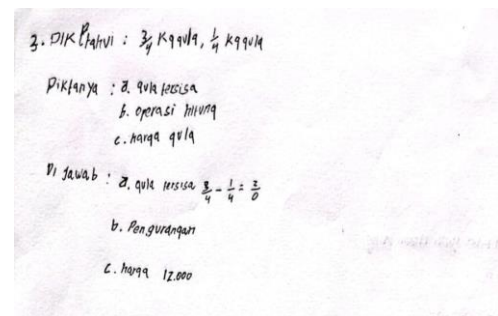 3. DIKEtahui : 3/4 Kg gula, 1/4 Kg gula
Diktanya : a. gula tersisa
b. operasi hitung
c. harga gula
Di Jawab : a. gula tersisa 3/4 - 1/4 = 2/0
b. Pengurangan
c. harga 12.000